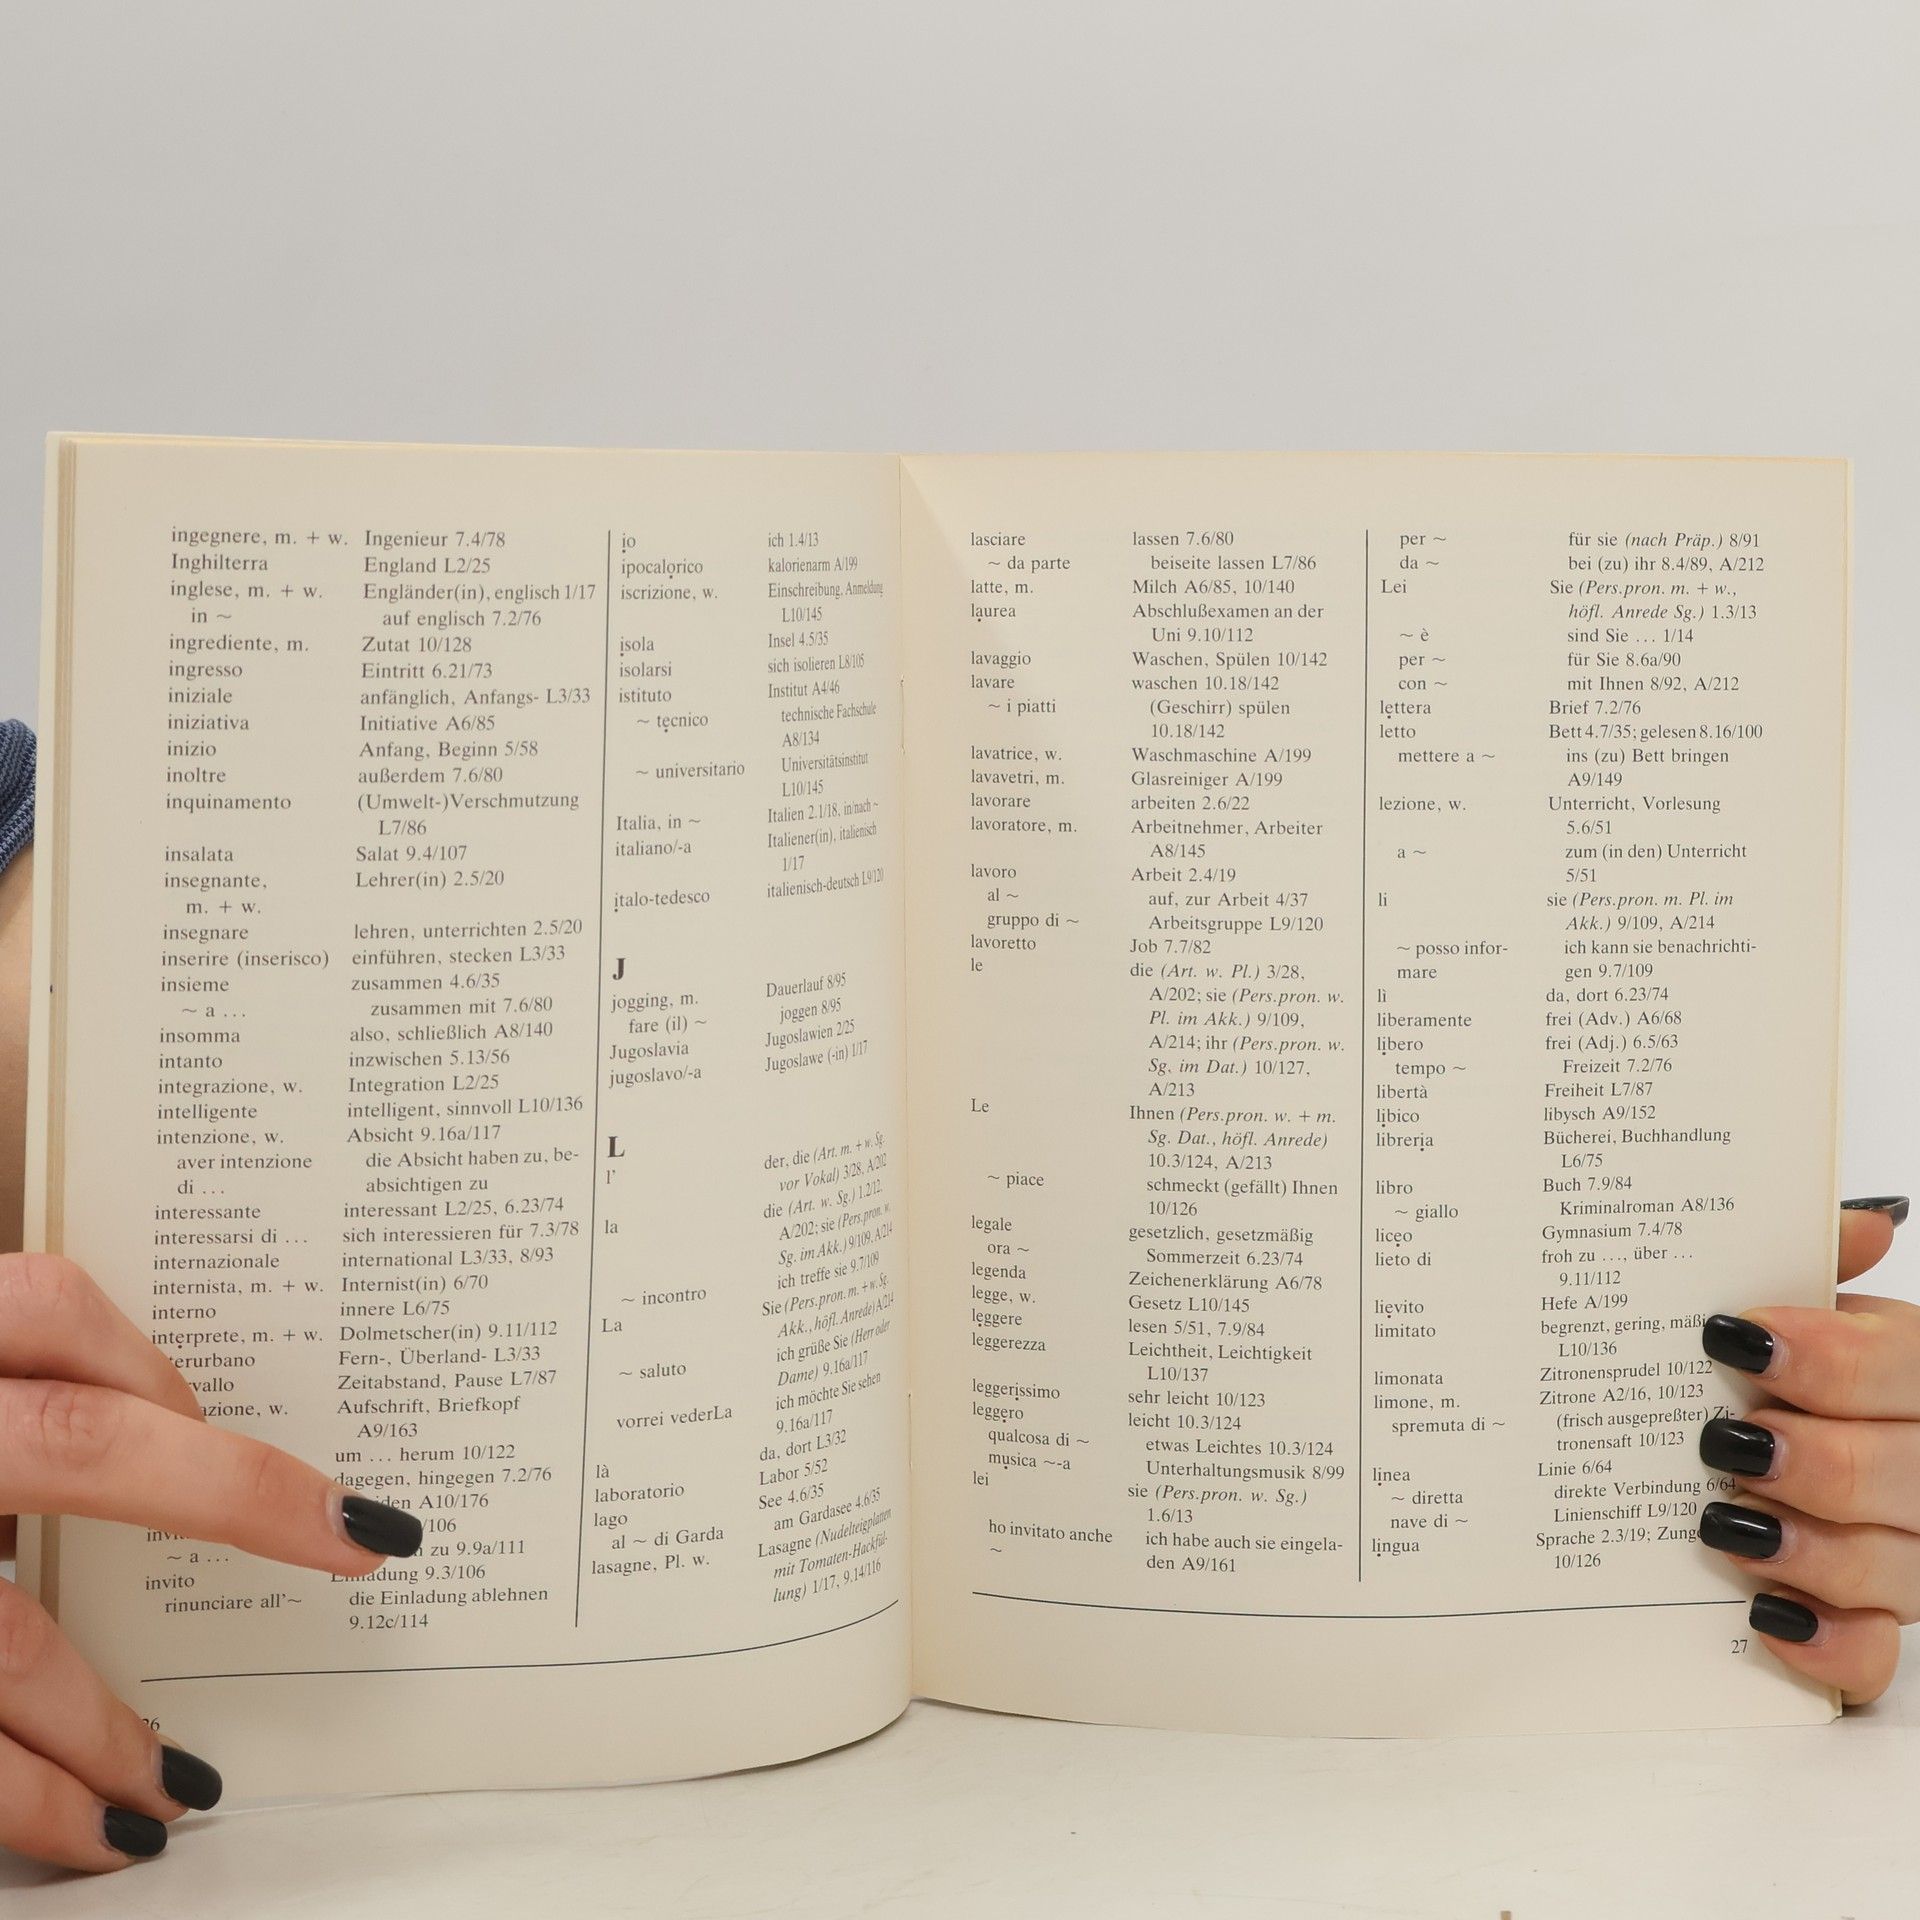 ingegnere, m. + w. Ingenieur 7.4/78
Inghilterra England L2/25
inglese, m. + w. Engländer(in), englisch 1/17
in ~ auf englisch 7.2/76
ingrediente, m. Zutat 10/128
ingresso Eintritt 6.21/73
iniziale anfänglich, Anfangs- L3/33
iniziativa Initiative A6/85
inizio Anfang, Beginn 5/58
inoltre außerdem 7.6/80
inquinamento (Umwelt-)Verschmutzung
L7/86
insalata Salat 9.4/107
insegnante, Lehrer(in) 2.5/20
m. + w.
insegnare lehren, unterrichten 2.5/20
inserire (inserisco) einführen, stecken L3/33
insieme zusammen 4.6/35
~ a ... zusammen mit 7.6/80
insomma also, schließlich A8/140
intanto inzwischen 5.13/56
integrazione, w. Integration L2/25
intelligente intelligent, sinnvoll L10/136
intenzione, w. Absicht 9.16a/117
aver intenzione die Absicht haben zu, be-
di ... absichtigen zu
interessante interessant L2/25, 6.23/74
interessarsi di ... sich interessieren für 7.3/78
internazionale international L3/33, 8/93
internista, m. + w. Internist(in) 6/70
interno innere L6/75
intẹrprete, m. + w. Dolmetscher(in) 9.11/112
terurbano Fern-, Überland- L3/33
vallo Zeitabstand, Pause L7/87
azione, w. Aufschrift, Briefkopf
A9/163
um ... herum 10/122
dagegen, hingegen 7.2/76
den A10/176
/106
~ a ... zu 9.9a/111
invito Einladung 9.3/106
rinunciare all'~ die Einladung ablehnen
9.12c/114
ịo ich 1.4/13
ipocalọrico kalorienarm A/199
iscrizione, w. Einschreibung, Anmeldung
L10/145
ịsola Insel 4.5/35
isolarsi sich isolieren L8/105
istituto Institut A4/46
~ tẹcnico technische Fachschule
A8/134
~ universitario Universitätsinstitut
L10/145
Italia, in ~ Italien 2.1/18, in/nach ~
italiano/-a Italiener(in), italienisch
1/17
ịtalo-tedesco italienisch-deutsch L9/120
J
jogging, m. Dauerlauf 8/95
fare (il) ~ joggen 8/95
Jugoslavia Jugoslawien 2/25
jugoslavo/-a Jugoslawe (-in) 1/17
L
l' der, die (Art. m. + w. Sg.
vor Vokal) 3/28, A/202
la die (Art. w. Sg.) 1.2/12,
A/202; sie (Pers.pron. w.
Sg. im Akk.) 9/109, A/214
~ incontro ich treffe sie 9.7/109
La Sie (Pers.pron. m. + w. Sg.
Akk., höfl. Anrede) A/214
~ saluto ich grüße Sie (Herr oder
Dame) 9.16a/117
vorrei vederLa ich möchte Sie sehen
9.16a/117
là da, dort L3/32
laboratorio Labor 5/52
lago See 4.6/35
al ~ di Garda am Gardasee 4.6/35
lasagne, Pl. w. Lasagne (Nudelteigplatten
mit Tomaten-Hackfül-
lung) 1/17, 9.14/116
26
lasciare lassen 7.6/80
~ da parte beiseite lassen L7/86
latte, m. Milch A6/85, 10/140
lạurea Abschlußexamen an der
Uni 9.10/112
lavaggio Waschen, Spülen 10/142
lavare waschen 10.18/142
~ i piatti (Geschirr) spülen
10.18/142
lavatrice, w. Waschmaschine A/199
lavavetri, m. Glasreiniger A/199
lavorare arbeiten 2.6/22
lavoratore, m. Arbeitnehmer, Arbeiter
A8/145
lavoro Arbeit 2.4/19
al ~ auf, zur Arbeit 4/37
gruppo di ~ Arbeitsgruppe L9/120
lavoretto Job 7.7/82
le die (Art. w. Pl.) 3/28,
A/202; sie (Pers.pron. w.
Pl. im Akk.) 9/109,
A/214; ihr (Pers.pron. w.
Sg. im Dat.) 10/127,
A/213
Le Ihnen (Pers.pron. w. + m.
Sg. Dat., höfl. Anrede)
10.3/124, A/213
~ piace schmeckt (gefällt) Ihnen
10/126
legale gesetzlich, gesetzmäßig
ora ~ Sommerzeit 6.23/74
legenda Zeichenerklärung A6/78
legge, w. Gesetz L10/145
lẹggere lesen 5/51, 7.9/84
leggerezza Leichtheit, Leichtigkeit
L10/137
leggerịssimo sehr leicht 10/123
leggẹro leicht 10.3/124
qualcosa di ~ etwas Leichtes 10.3/124
mụsica ~-a Unterhaltungsmusik 8/99
lei sie (Pers.pron. w. Sg.)
1.6/13
ho invitato anche ich habe auch sie eingela-
~ den A9/161
per ~ für sie (nach Präp.) 8/91
da ~ bei (zu) ihr 8.4/89, A/212
Lei Sie (Pers.pron. m. + w.,
höfl. Anrede Sg.) 1.3/13
~ è sind Sie ... 1/14
per ~ für Sie 8.6a/90
con ~ mit Ihnen 8/92, A/212
lẹttera Brief 7.2/76
letto Bett 4.7/35; gelesen 8.16/100
mettere a ~ ins (zu) Bett bringen
A9/149
lezione, w. Unterricht, Vorlesung
5.6/51
a ~ zum (in den) Unterricht
5/51
li sie (Pers.pron. m. Pl. im
Akk.) 9/109, A/214
~ posso infor- ich kann sie benachrichti-
mare gen 9.7/109
lì da, dort 6.23/74
liberamente frei (Adv.) A6/68
lịbero frei (Adj.) 6.5/63
tempo ~ Freizeit 7.2/76
libertà Freiheit L7/87
lịbico libysch A9/152
librerịa Bücherei, Buchhandlung
L6/75
libro Buch 7.9/84
~ giallo Kriminalroman A8/136
licẹo Gymnasium 7.4/78
lieto di froh zu ..., über ...
9.11/112
liẹvito Hefe A/199
limitato begrenzt, gering, mäßi
L10/136
limonata Zitronensprudel 10/122
limone, m. Zitrone A2/16, 10/123
spremuta di ~ (frisch ausgepreßter) Zi-
tronensaft 10/123
lịnea Linie 6/64
~ diretta direkte Verbindung 6/64
nave di ~ Linienschiff L9/120
lịngua Sprache 2.3/19; Zunge
10/126
27